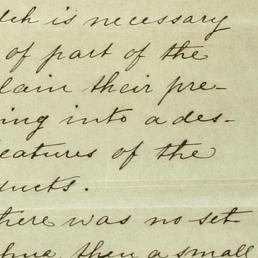 ich is necessary
of part of the
lain their pre-
ing into a des-
eatures of the
ducts.
there was no set
then a small